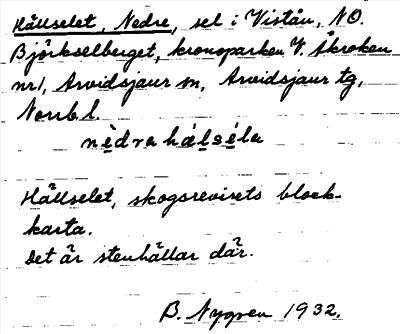 Hällselet, Nedre, sel i Vistån, NO.
Björkselberget, kronoparken V. Åkroken
nr 1, Arvidsjaur sn, Arvidsjaur tg,
Norrb. l.
nèdra hálséla
Hällselet, skogsrevirets block-
karta.
Det är stenhällar där.
B. Nygren 1932.